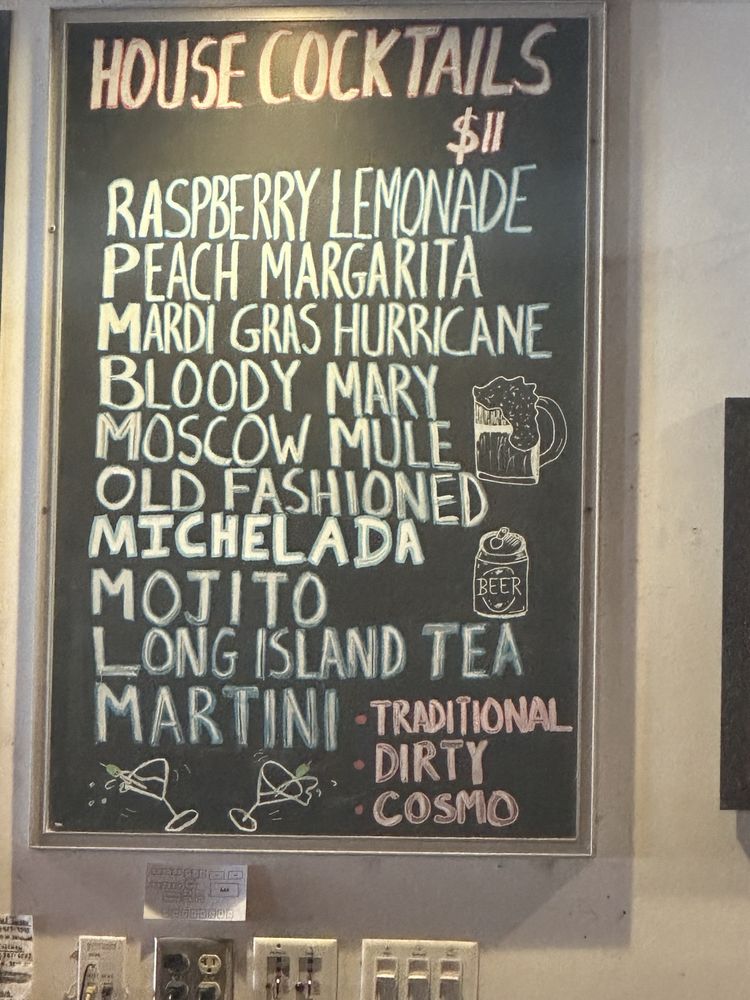 HOUSE COCKTAILS
$11
RASPBERRY LEMONADE
PEACH MARGARITA
MARDI GRAS HURRICANE
BLOODY MARY
MOSCOW MULE
OLD FASHIONED
MICHELADA
BEER
MOJITO
LONG ISLAND TEA
MARTINI
• TRADITIONAL
• DIRTY
• COSMO